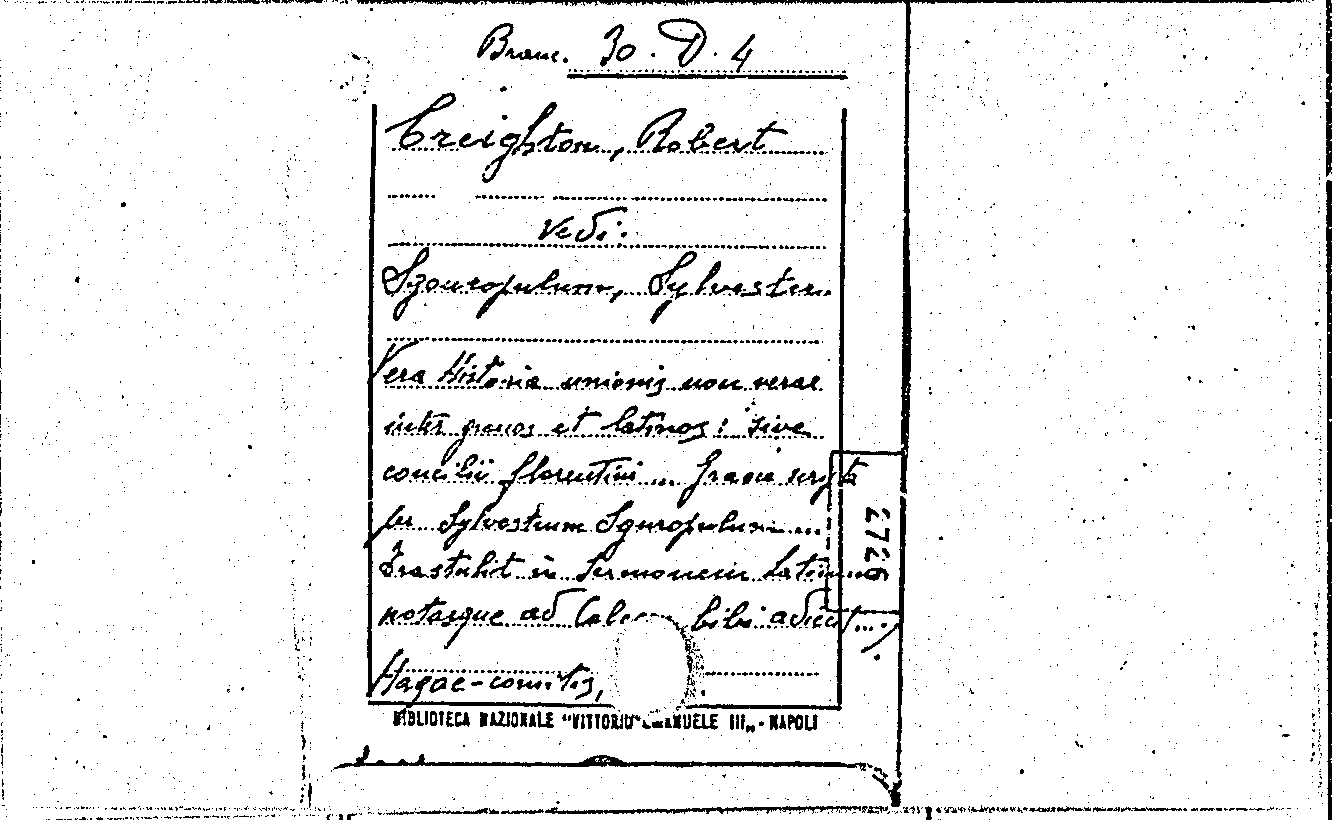 Branc. 30. D. 4
Creighton, Robert
Vedi:
Sgouropulum, Sylvester
Vera Historia unionis non verae
inter graecos et latinos: sive
concilii florentini ... graece scripta
per Sylvestrum Sguropulum ...
Trastulit in Sermonem Latinum
notasque ad libri adiecit ...
Hagae-comitis,
BIBLIOTECA NAZIONALE "VITTORIO EMANUELE III" - NAPOLI
2726